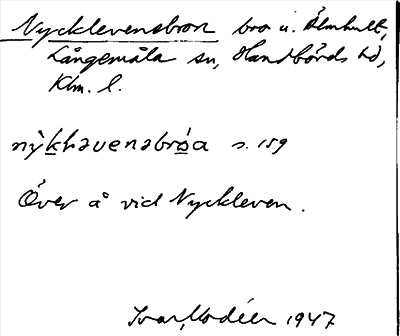 Nycklevensbron bro u. Älmhult,
Långemåla sn, Handbörds hd,
Klm. l.
nỳkhəvenəbrơa s. 159
Över å vid Nyckleven.
Ivar Modéer 1947